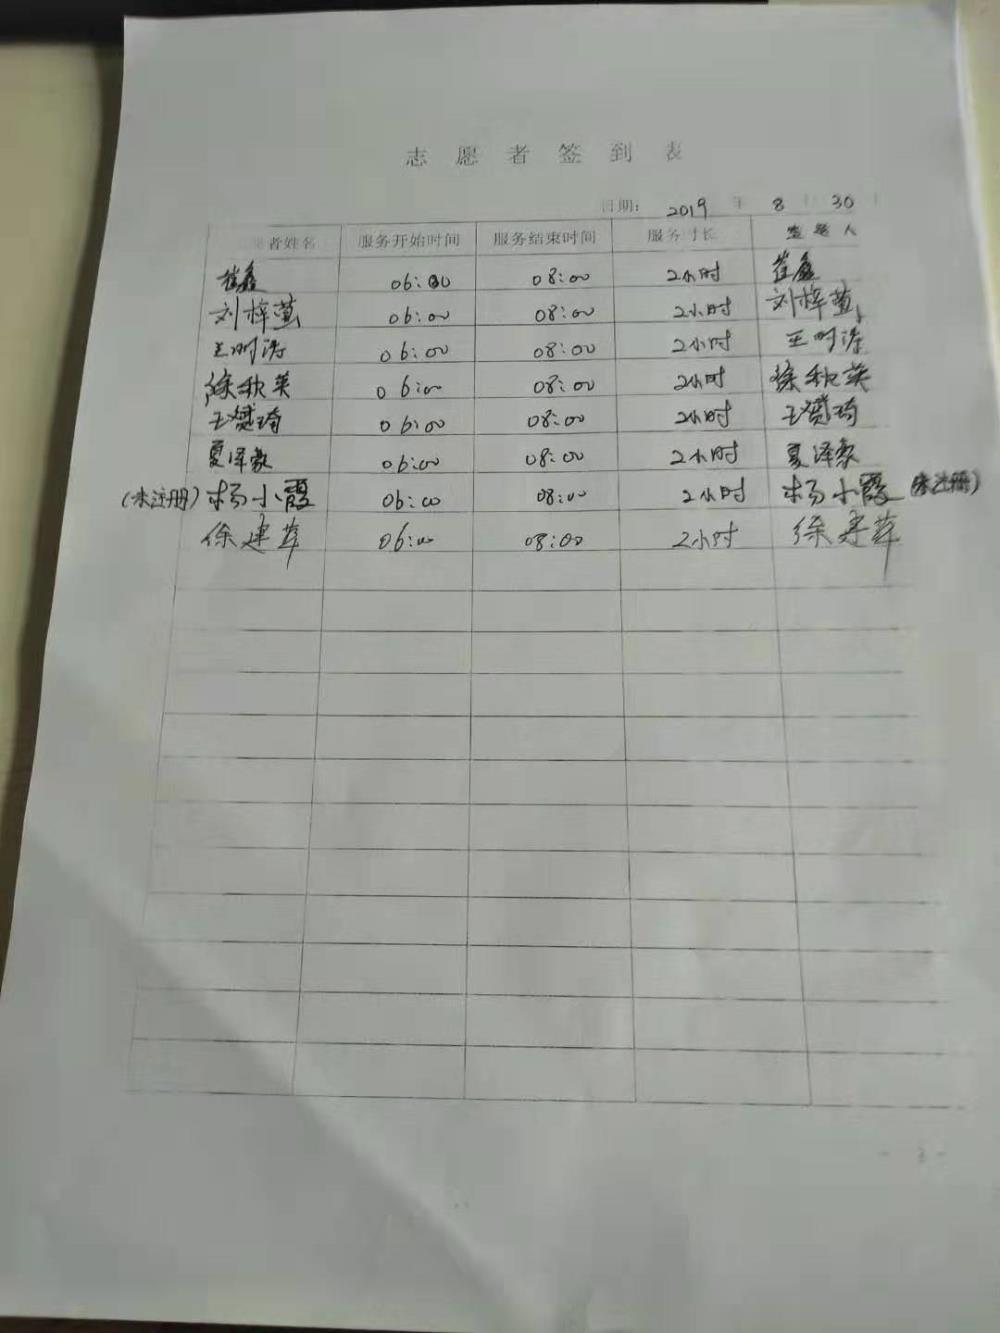 志愿者签到表
日期: 2019 年 8 月 30
者姓名 服务开始时间 服务结束时间 服务时长 签名人
崔鑫 06:00 08:00 2小时 崔鑫
刘梓萱 06:00 08:00 2小时 刘梓萱
王明涛 06:00 08:00 2小时 王明涛
徐秋英 06:00 08:00 2小时 徐秋英
王赟琦 06:00 08:00 2小时 王赟琦
夏泽豪 06:00 08:00 2小时 夏泽豪
(未注册) 杨小霞 06:00 08:00 2小时 杨小霞 (未注册)
徐建萍 06:00 08:00 2小时 徐建萍